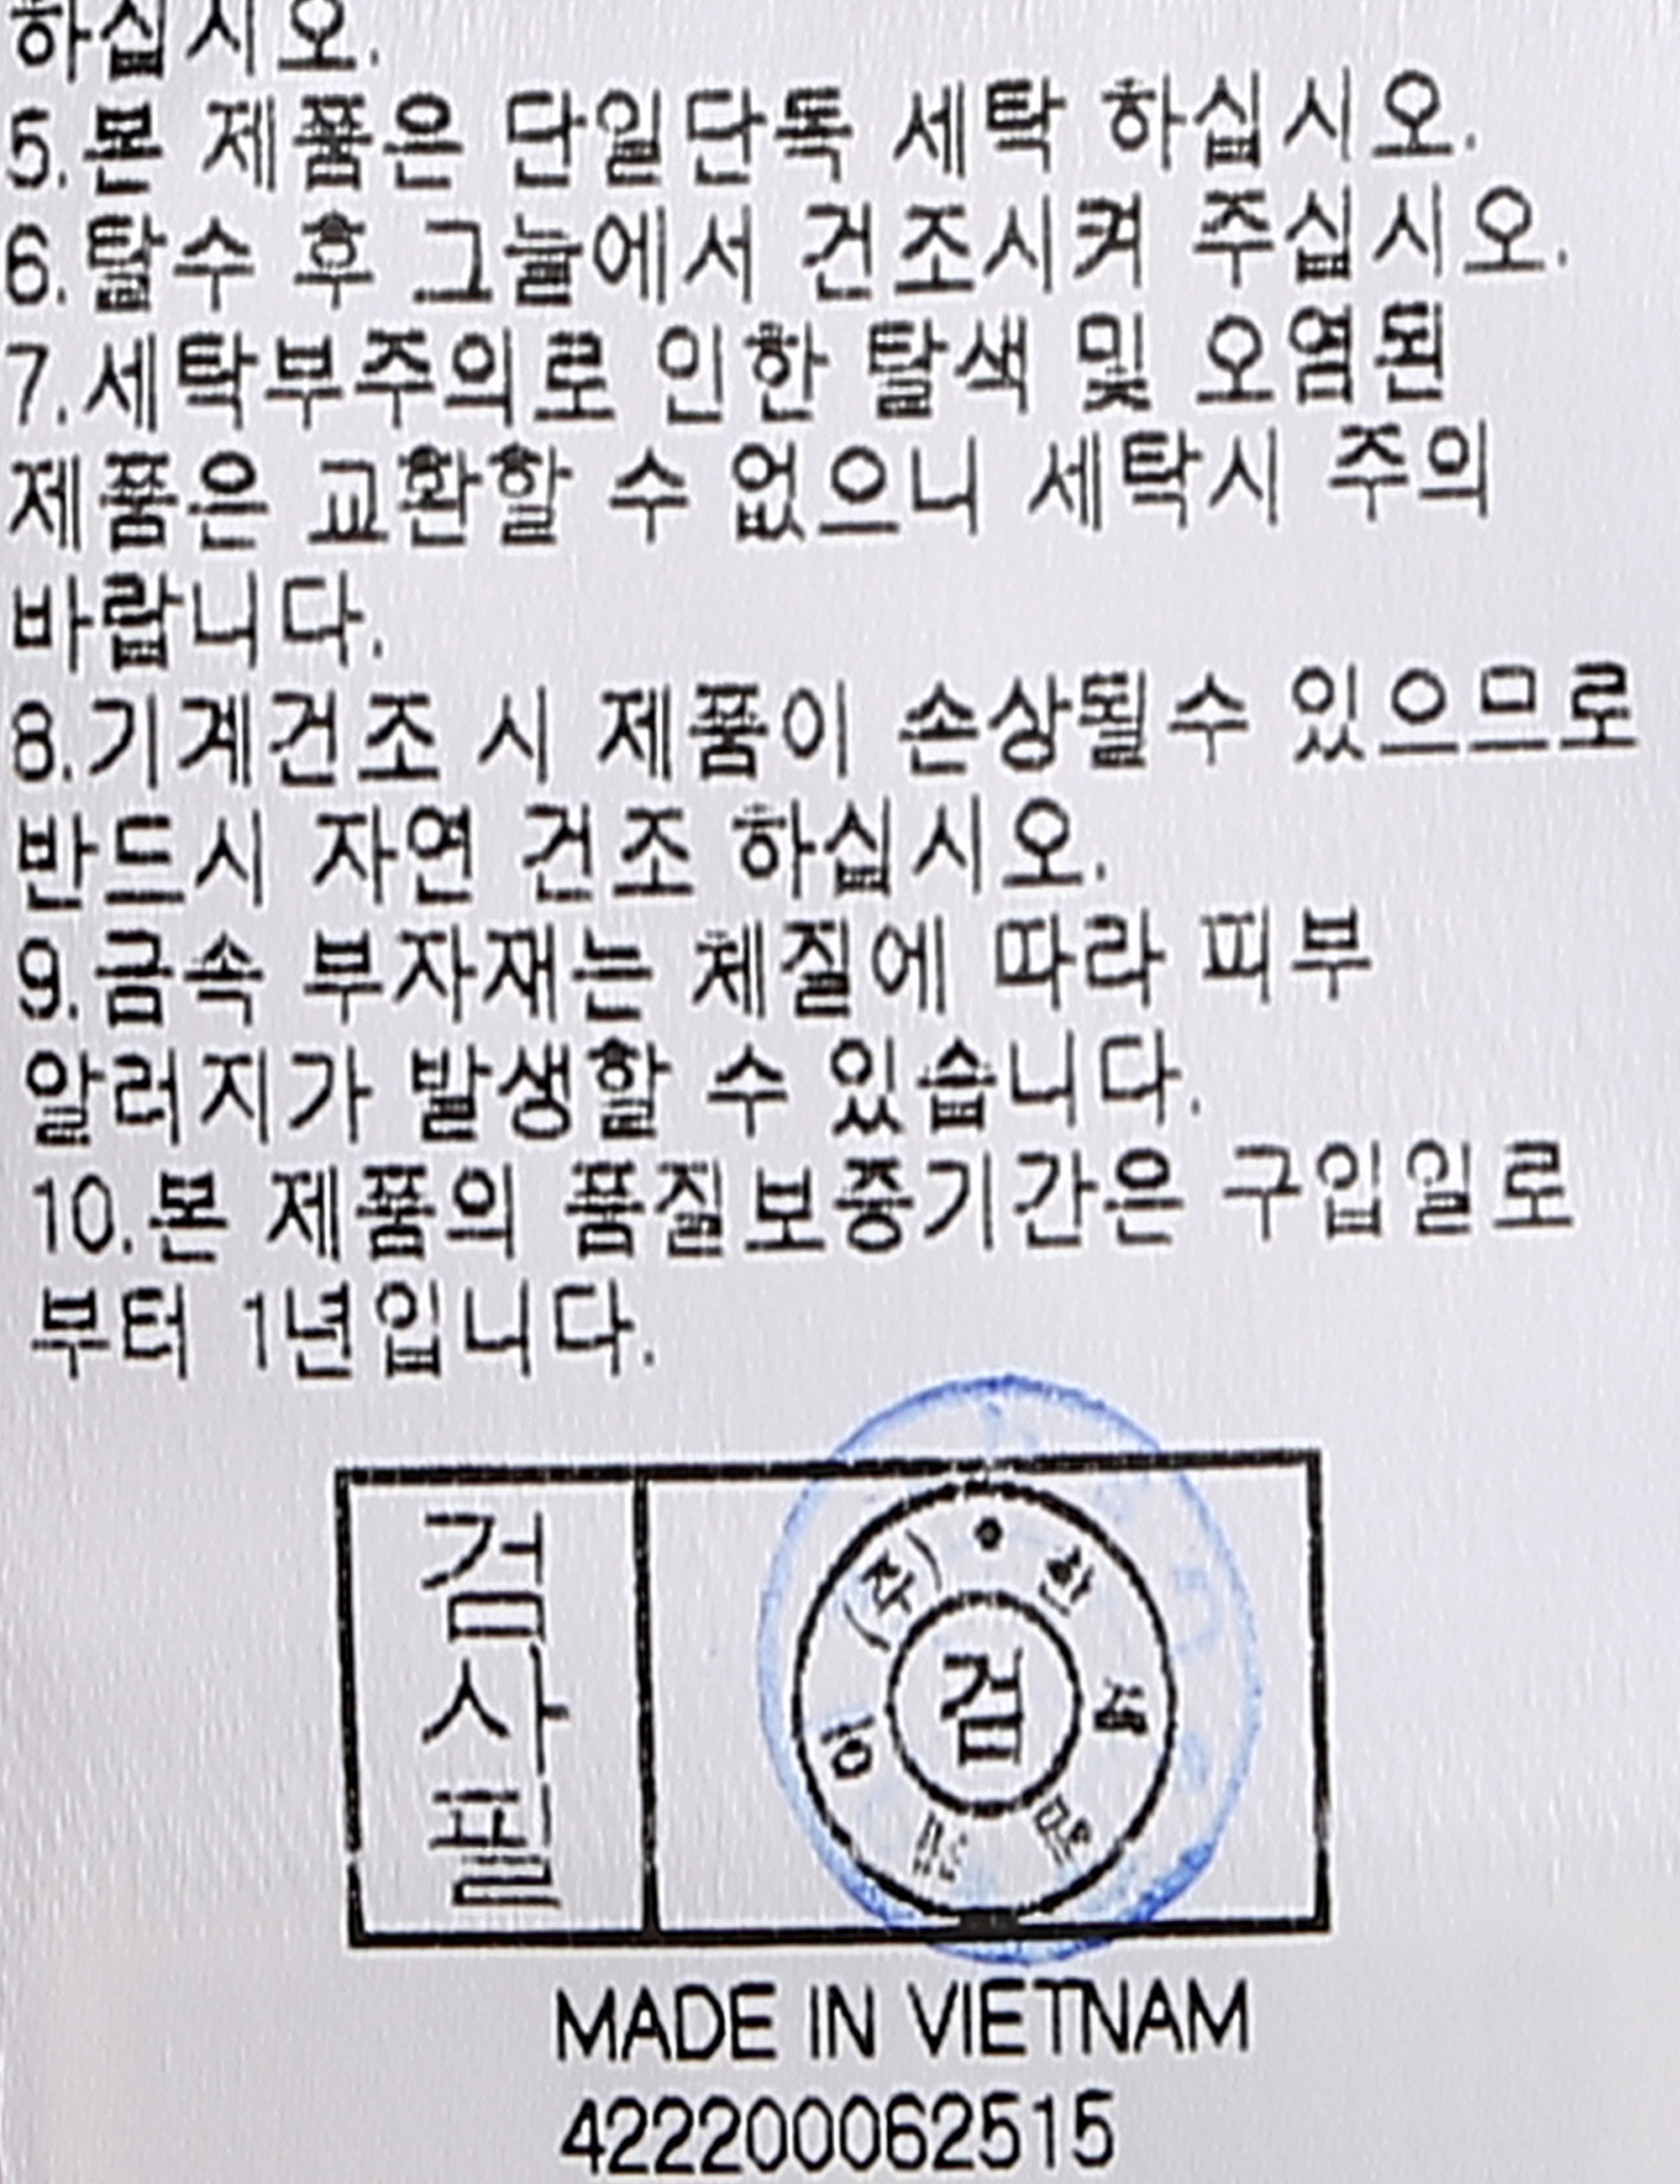 하십시오.
5.본 제품은 단일단독 세탁 하십시오.
6.탈수 후 그늘에서 건조시켜 주십시오.
7.세탁부주의로 인한 탈색 및 오염된
제품은 교환할 수 없으니 세탁시 주의
바랍니다.
8.기계건조 시 제품이 손상될수 있으므로
반드시 자연 건조 하십시오.
9.금속 부자재는 체질에 따라 피부
알러지가 발생할 수 있습니다.
10.본 제품의 품질보증기간은 구입일로
부터 1년입니다.
검사필
검
(주)
한
세
MADE IN VIETNAM
422200062515